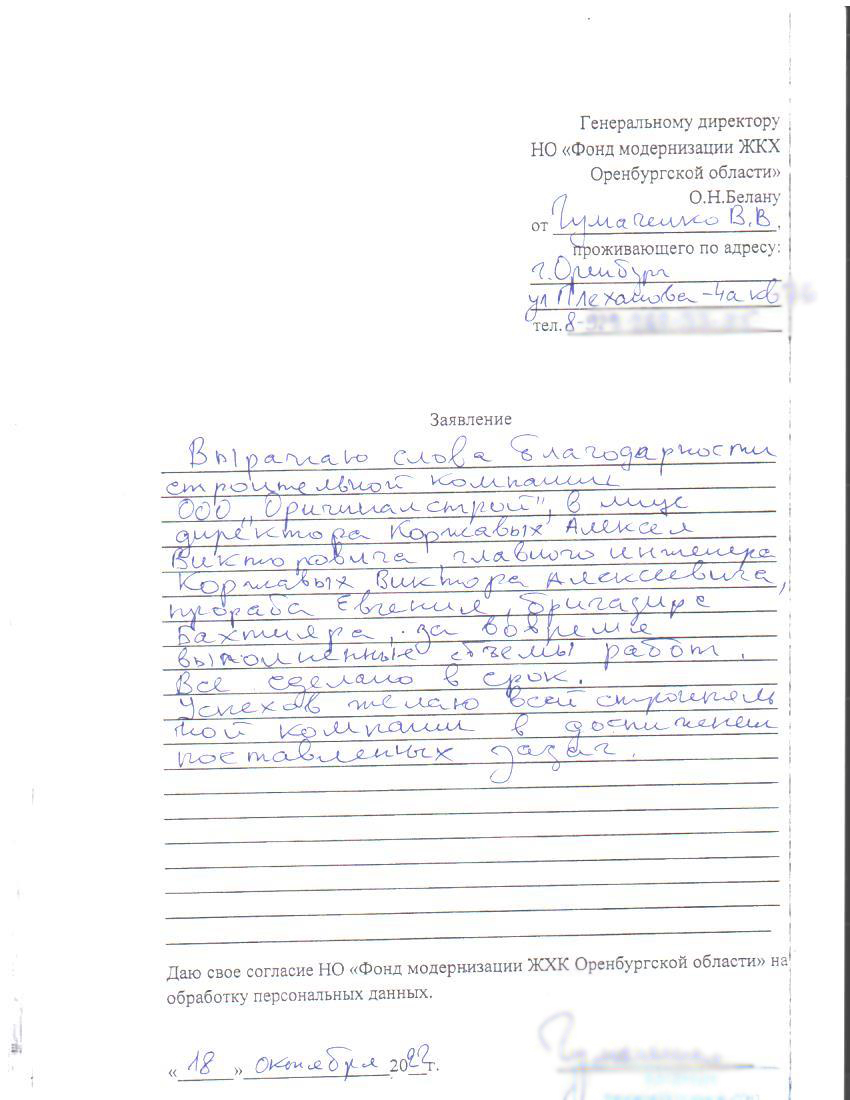 Генеральному директору
НО «Фонд модернизации ЖКХ
Оренбургской области»
О.Н.Белану
от Гумаченко В.В,
проживающего по адресу:
г. Оренбург
ул Плеханова-4а кв
тел. 8-
Заявление
Выражаю слова благодарности
строительной компании
ООО „Оригиналстрой", в лице
директора Коржавых Алексея
Викторовича, главного инженера
Коржавых Виктора Алексеевича,
прораба Евгения, бригадира
Бахтияра, за вовремя
выполненные объемы работ.
Все сделано в срок.
Успехов желаю всей строитель
ной компании в достижении
поставленных задач.
Даю свое согласие НО «Фонд модернизации ЖХК Оренбургской области» на
обработку персональных данных.
«18» октября 2022г.